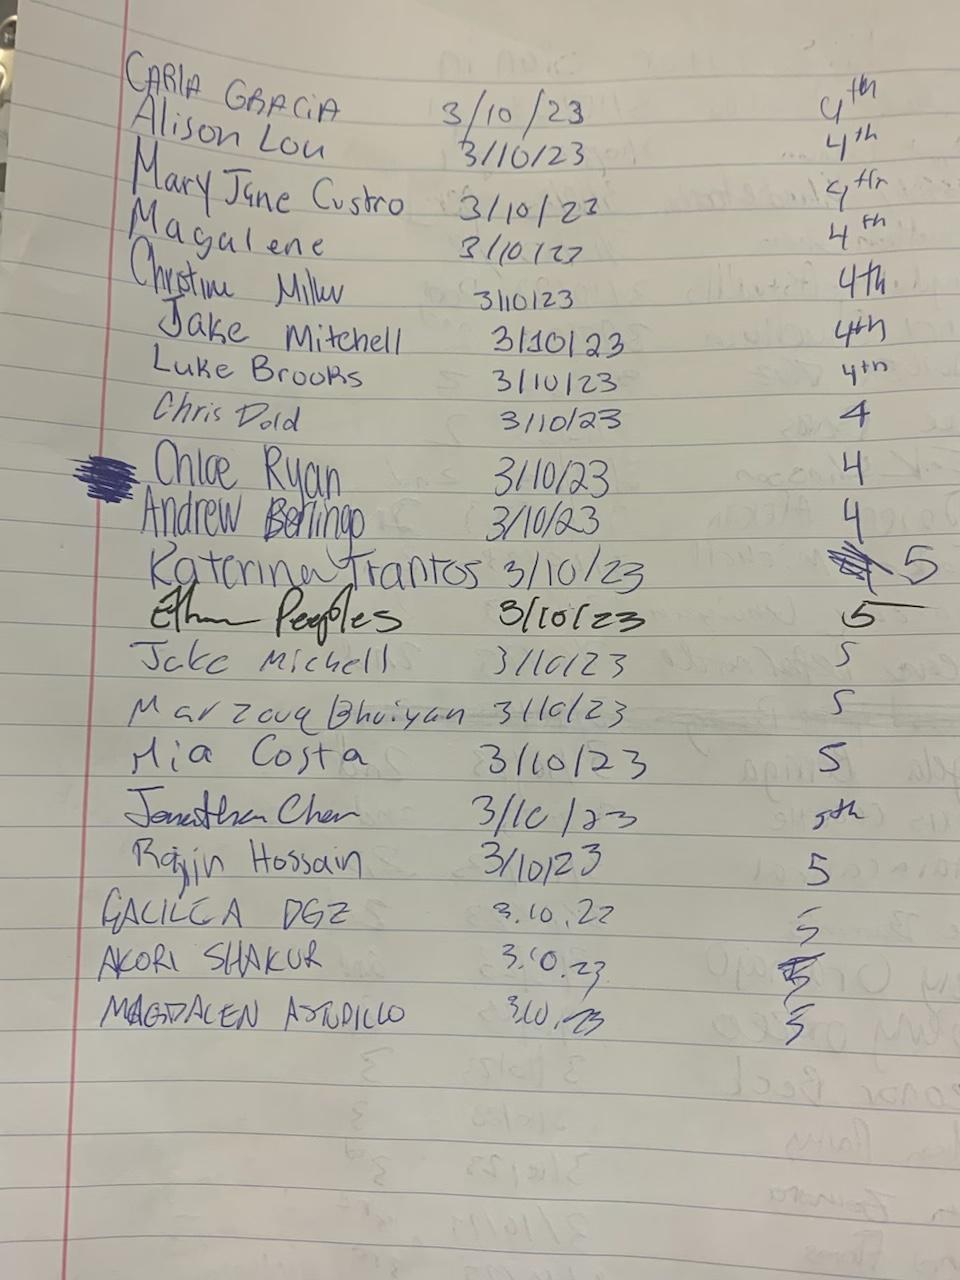 CARLA GRACIA 3/10/23 4th
Alison Lou 3/10/23 4th
Mary Jane Custro 3/10/23 4th
Magalene 3/10/22 4th
Christine Miller 3/10/23 4th
Jake Mitchell 3/10/23 4th
Luke Brooks 3/10/23 4th
Chris Dold 3/10/23 4
Chloe Ryan 3/10/23 4
Andrew Berlingo 3/10/23 4
Katerina Frantos 3/10/23 5
Ethan Peoples 3/10/23 5
Jake Michell 3/10/23 5
Marzouq Bhuiyan 3/10/23 5
Mia Costa 3/10/23 5
Jonathan Chen 3/10/23 5th
Hossain 3/10/23 5
GALILEA DGZ 3.10.22 5
AKORI SHAKUR 3.10.23 5
MAGDALEN ASTUDILLO 3.10.23 5